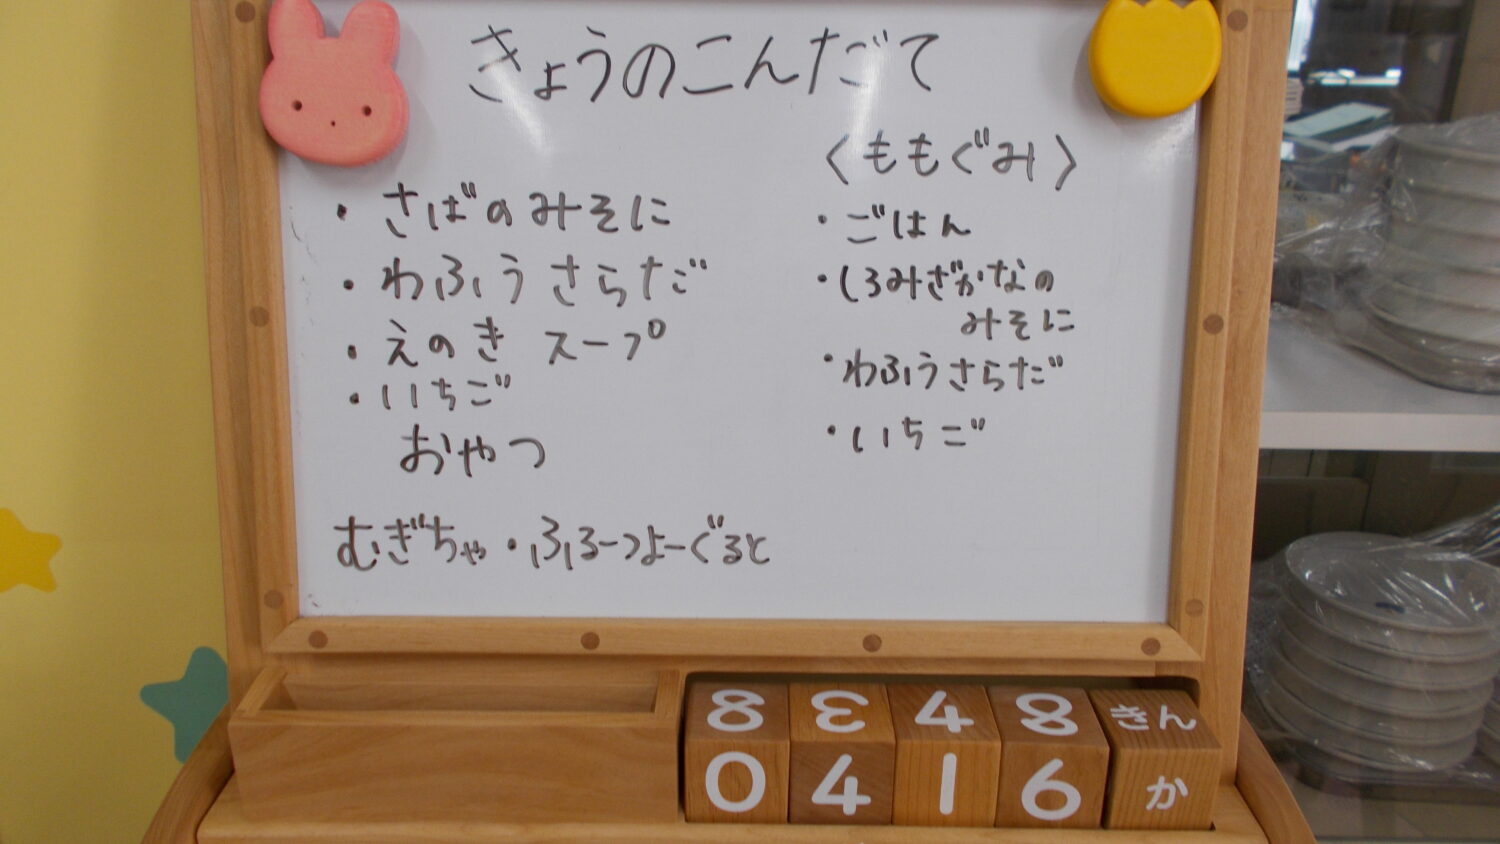 きょうのこんだて
・さばのみそに
・わふうさらだ
・えのき スープ
・いちご
おやつ
むぎちゃ・ふるーつよーぐると
〈ももぐみ〉
・ごはん
・しろみざかなの
みそに
・わふうさらだ
・いちご
8 3 4 8 きん
0 4 1 6 か